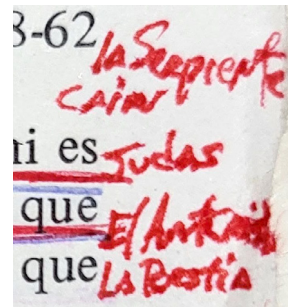 8-62
la Serpiente
Cain
ni es Judas
que El Anticris
que La Bestia